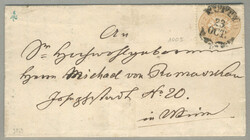 23
OCT.
An
Sr Hochwohlgeboren
Herrn Michael von
Josephstadt No 20.
in Wien